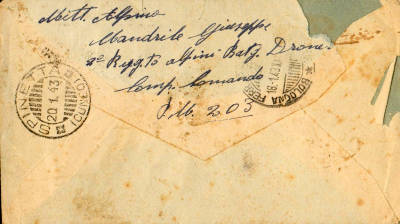 Mitt. Alpino
Mandrile Giuseppe
2º Regg.to Alpini Batg. Drone-
Comp. Comando
P.M. 203
SPINETTA
20.1.43
BOLOGNA FERR
16.1.43